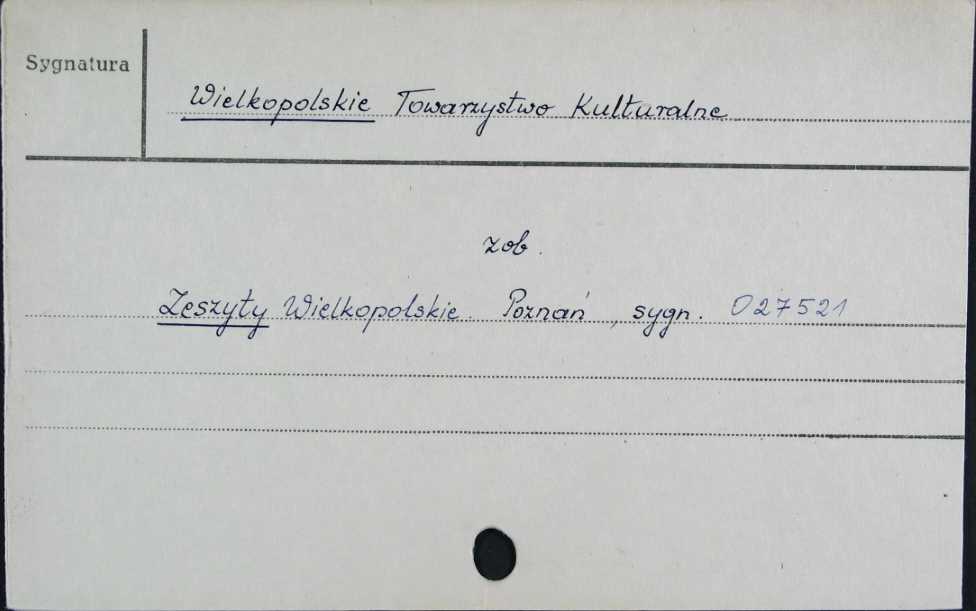 Sygnatura
Wielkopolskie Towarzystwo Kulturalne
zob.
Zeszyty Wielkopolskie. Poznań, sygn. 027521